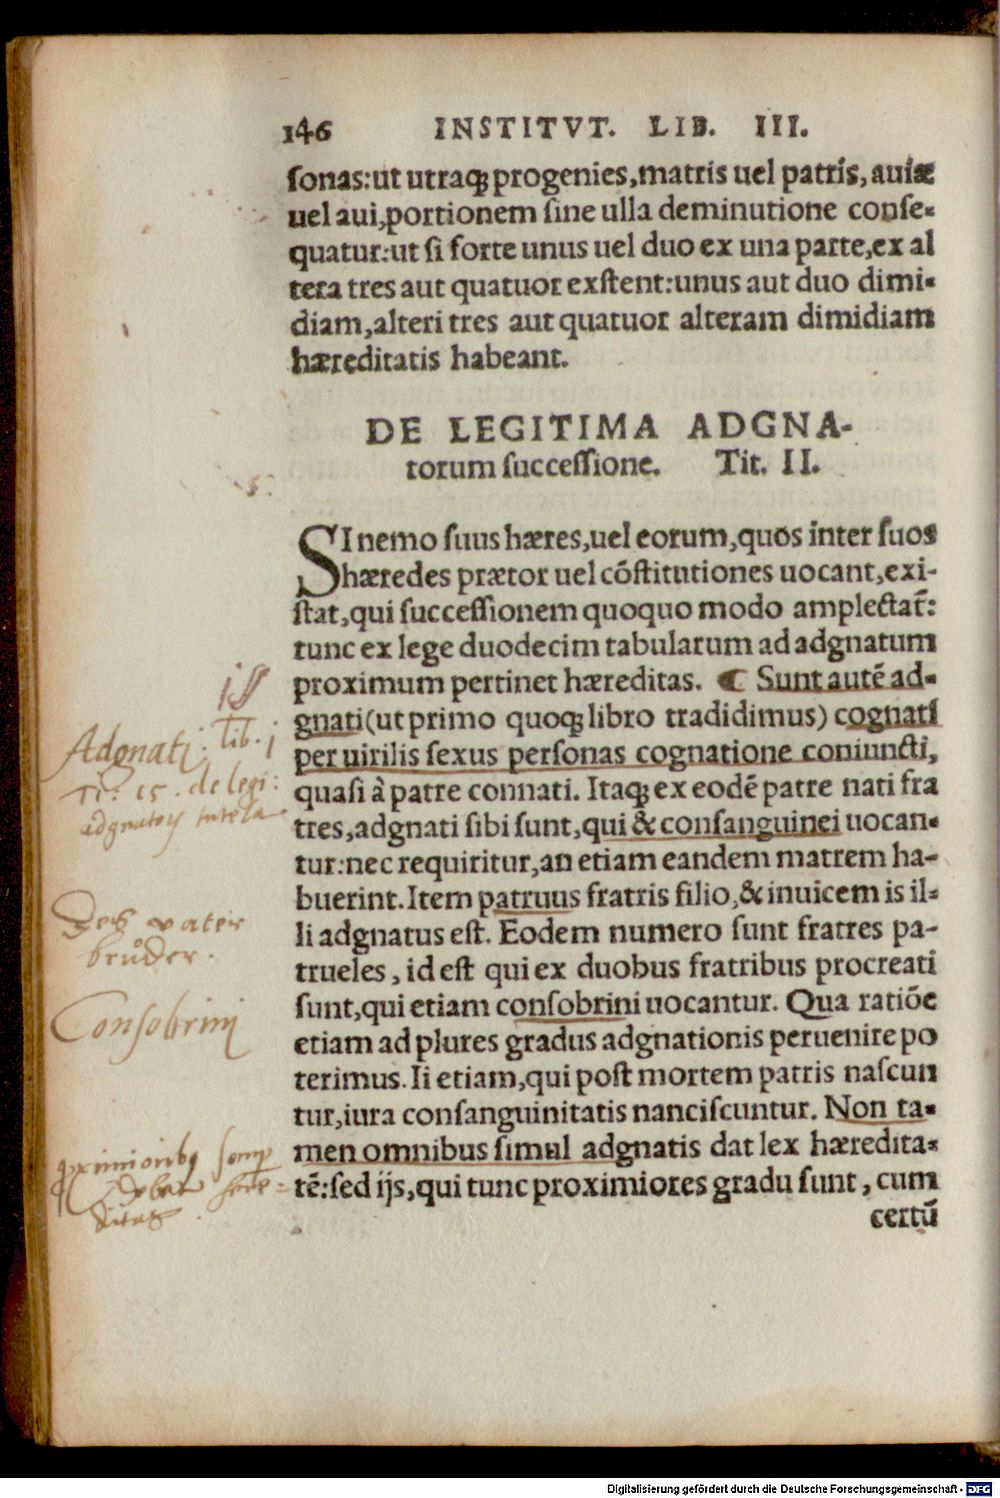 146 INSTITVT. LIB. III.
sonas:ut utraq; progenies,matris uel patris, auiæ
uel aui,portionem sine ulla deminutione conse-
quatur:ut si forte unus uel duo ex una parte,ex al
tera tres aut quatuor exstent:unus aut duo dimi-
diam,alteri tres aut quatuor alteram dimidiam
hæreditatis habeant.
DE LEGITIMA ADGNA-
torum successione. Tit. II.
SI nemo suus hæres,uel eorum,quos inter suos
hæredes prætor uel cōstitutiones uocant,exi-
stat,qui successionem quoquo modo amplectat̃:
tunc ex lege duodecim tabularum ad adgnatum
proximum pertinet hæreditas. ☙ Sunt autē ad-
gnati(ut primo quoq; libro tradidimus) cognati
per uirilis sexus personas cognatione coniuncti,
quasi à patre connati. Itaq; ex eodē patre nati fra
tres,adgnati sibi sunt,qui & consanguinei uocan-
tur:nec requiritur,an etiam eandem matrem ha-
buerint.Item patruus fratris filio,& inuicem is il-
li adgnatus est. Eodem numero sunt fratres pa-
trueles, id est qui ex duobus fratribus procreati
sunt,qui etiam consobrini uocantur. Qua ratiōe
etiam ad plures gradus adgnationis peruenire po
terimus. Ii etiam,qui post mortem patris nascun
tur,iura consanguinitatis nanciscuntur. Non ta-
men omnibus simul adgnatis dat lex hæredita-
tē:sed ijs,qui tunc proximiores gradu sunt, cum
certū
Adgnati. lib. j
Ti: 15. de legi:
tutela
Des vaters
brůder.
Consobrinj
Digitalisierung gefördert durch die Deutsche Forschungsgemeinschaft - DFG